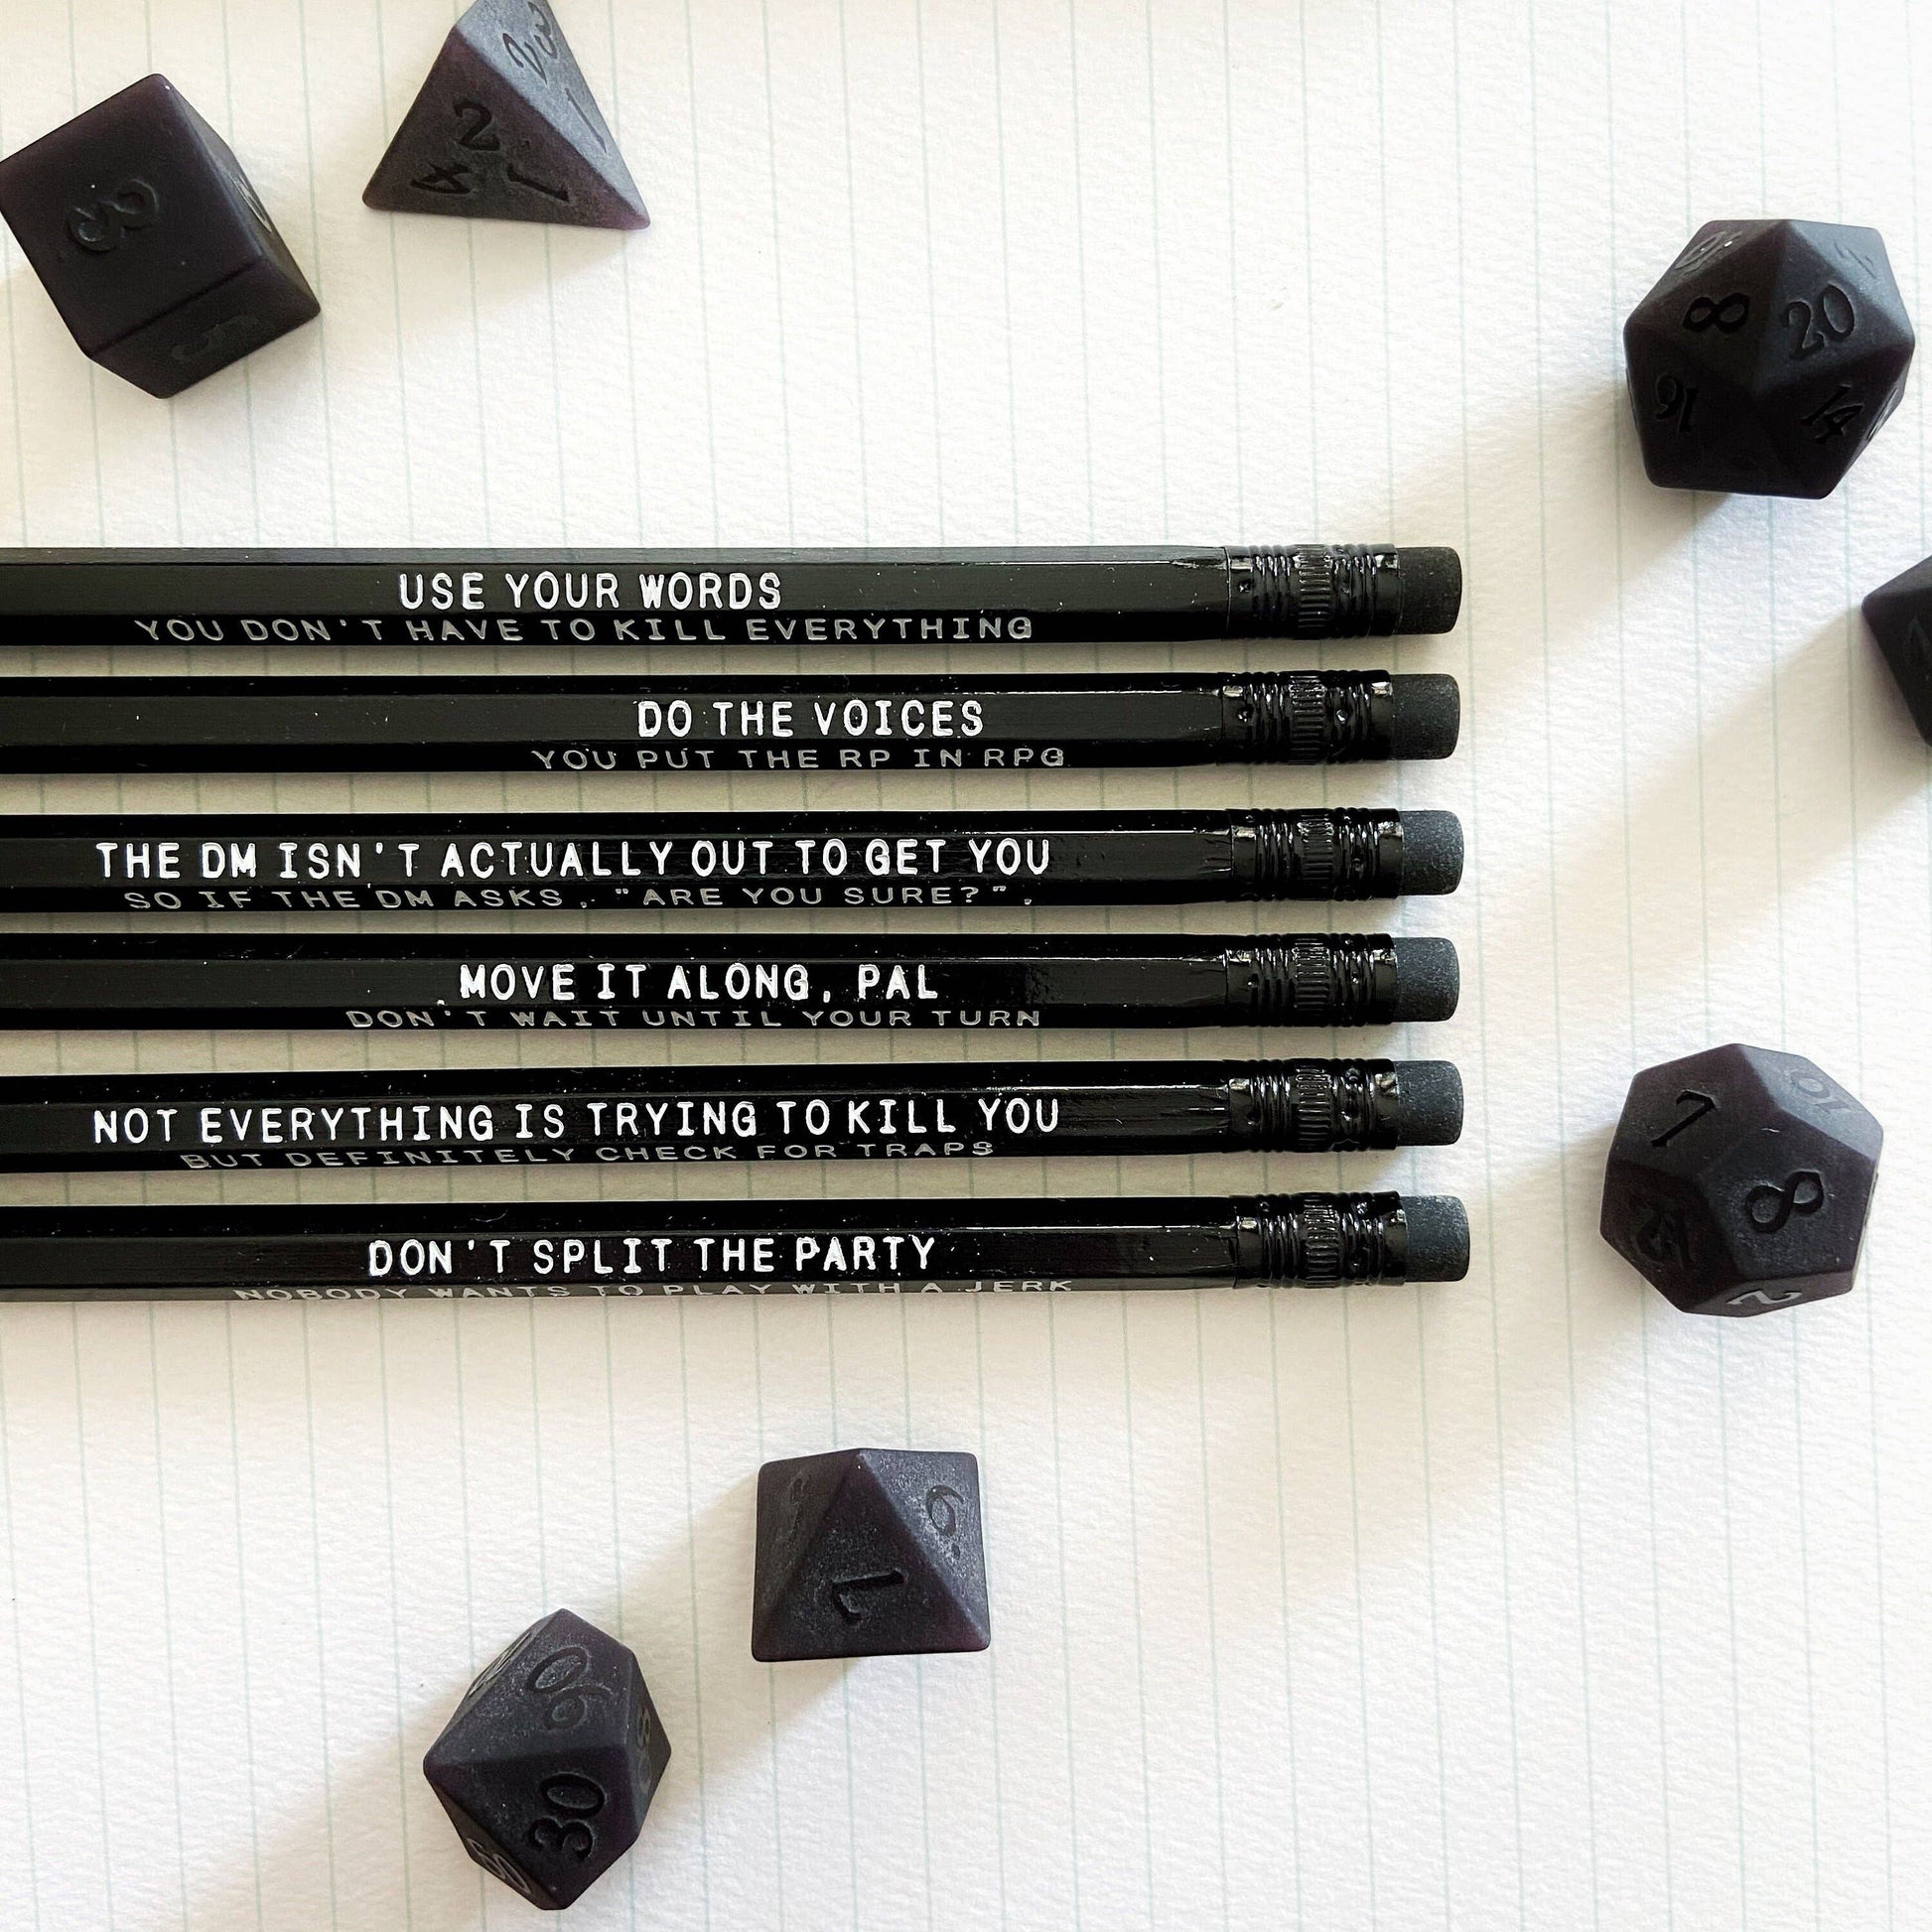 2 3
2 1
4 1
3
20
8
16
14
USE YOUR WORDS
YOU DON'T HAVE TO KILL EVERYTHING
DO THE VOICES
YOU PUT THE RP IN RPG
THE DM ISN'T ACTUALLY OUT TO GET YOU
SO IF THE DM ASKS, "ARE YOU SURE?",
MOVE IT ALONG, PAL
DON'T WAIT UNTIL YOUR TURN
NOT EVERYTHING IS TRYING TO KILL YOU
BUT DEFINITELY CHECK FOR TRAPS
DON'T SPLIT THE PARTY
NOBODY WANTS TO PLAY WITH A JERK
10
7
8
2
6.
1
90
30